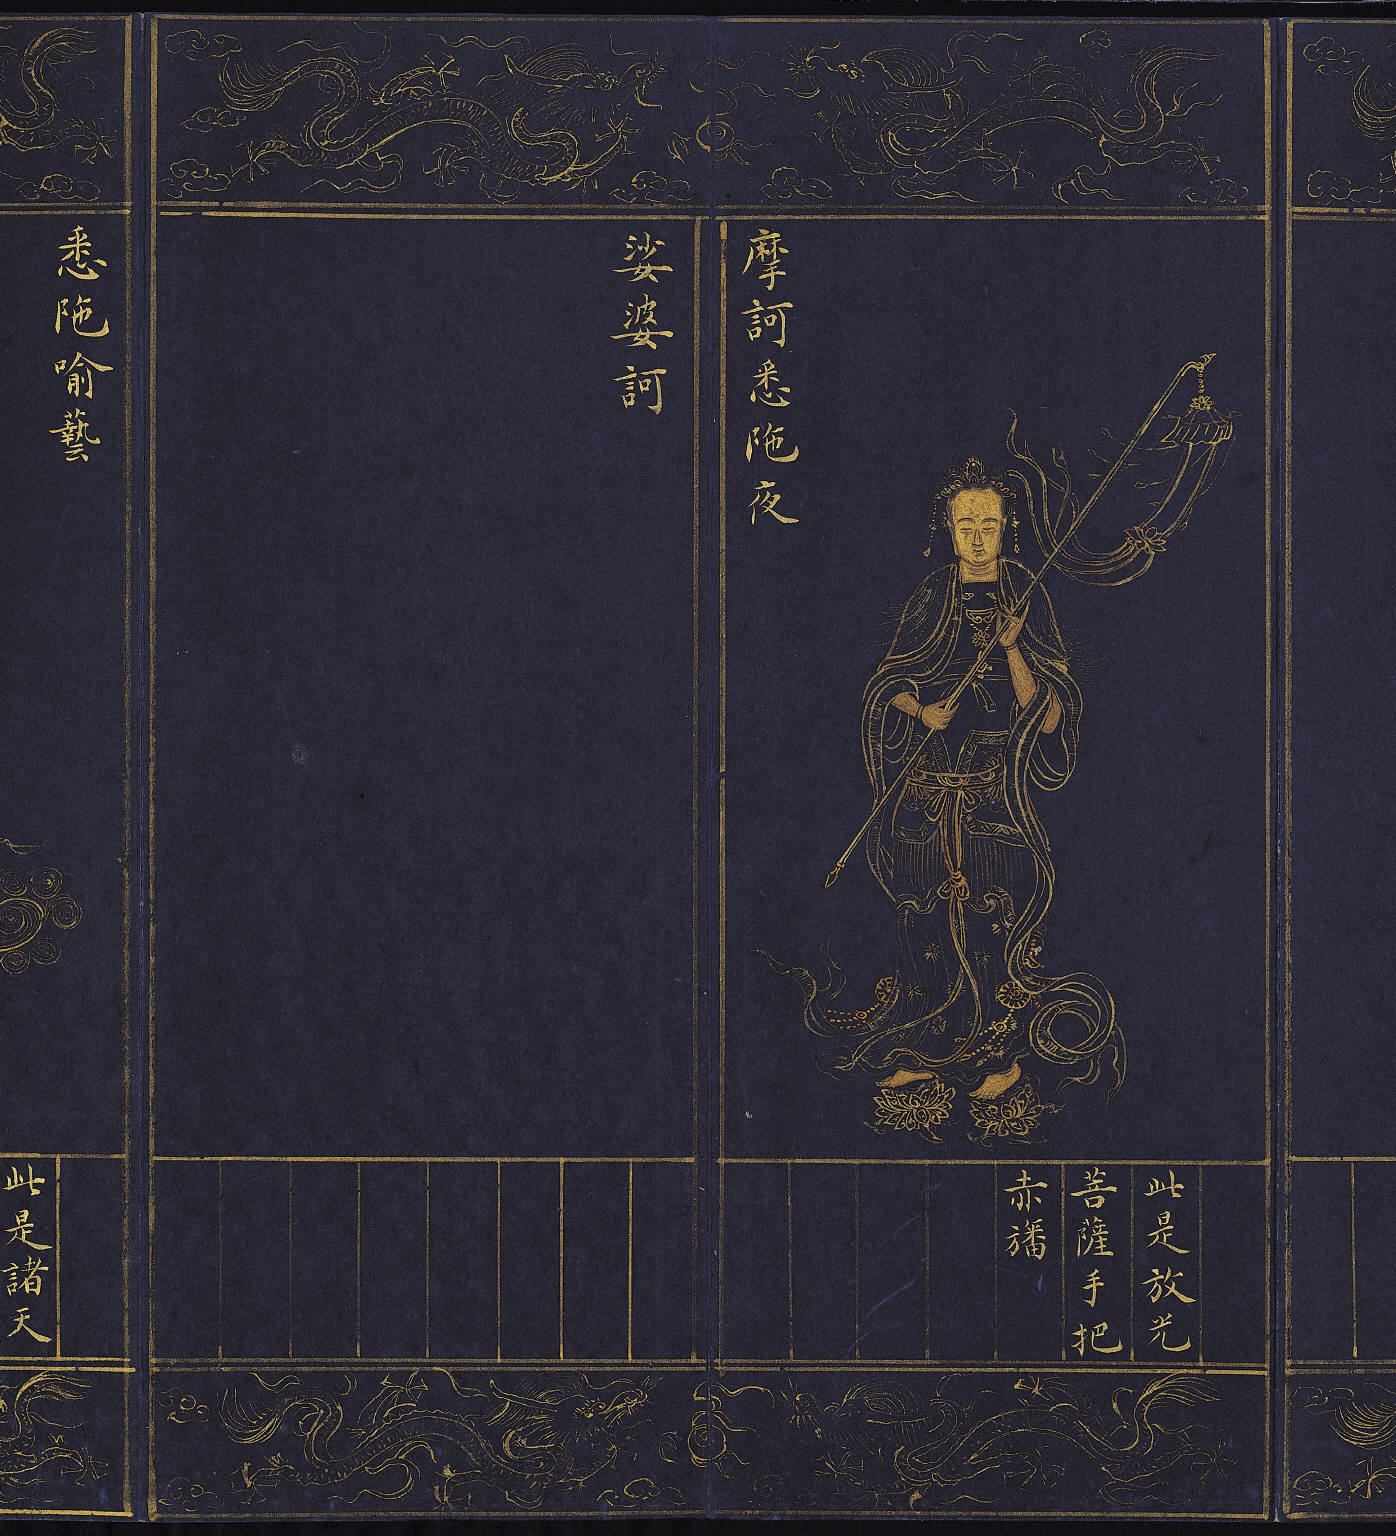 摩訶悉陁夜
此是放光
菩薩手把
赤旙
娑婆訶
悉陁喻藝
此是諸天